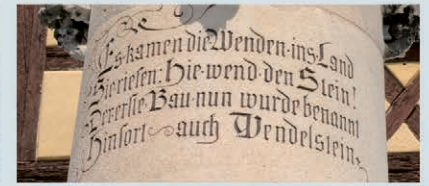 Es kamen die Wenden·ins Land
Sie riefen: Hie·wend·den Stein!
Der erste·Bau·nun wurde benannt
Hinfort auch Wendelstein.